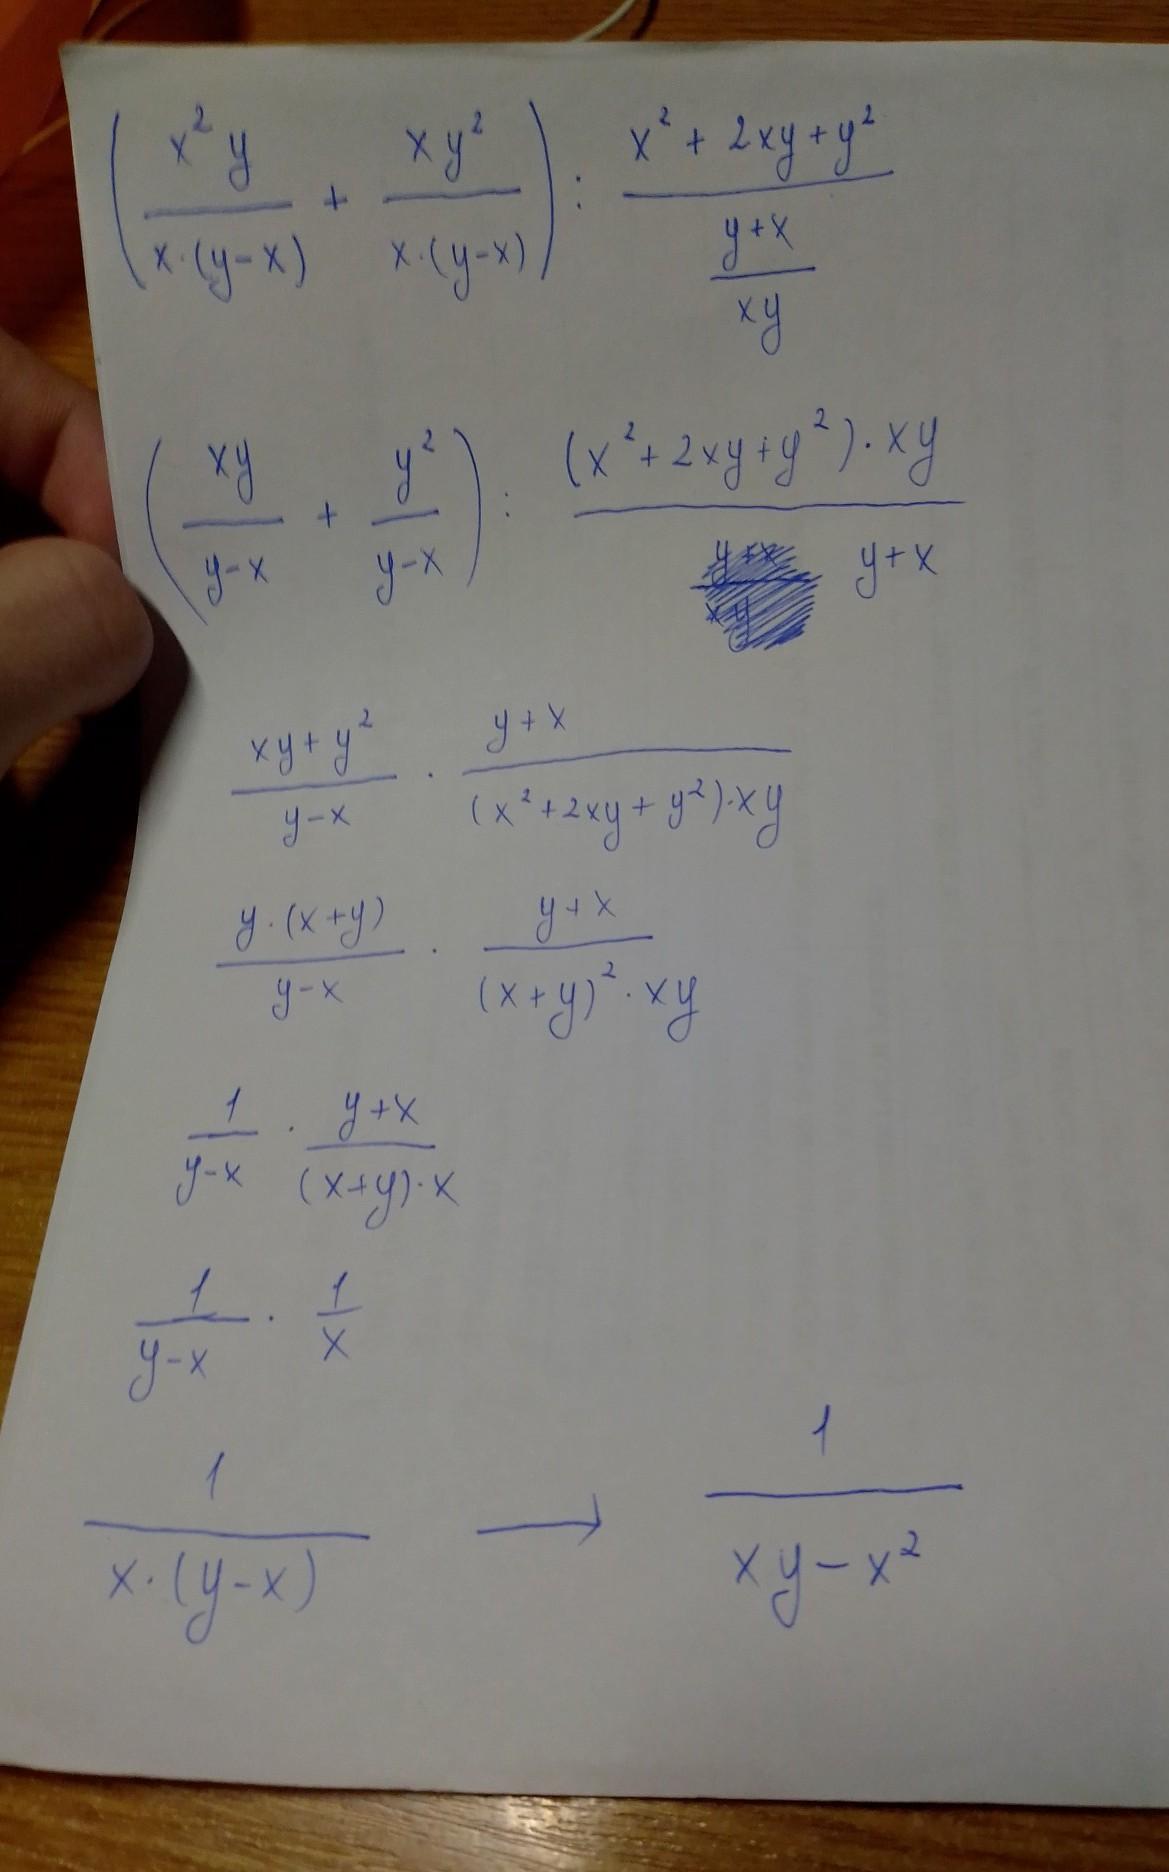 (x²y/(x·(y-x)) + xy²/(x·(y-x))) : (x²+2xy+y²)/((y+x)/(xy))
(xy/(y-x) + y²/(y-x)) : ((x²+2xy+y²)·xy)/(y+x)
(xy+y²)/(y-x) · (y+x)/((x²+2xy+y²)·xy)
(y·(x+y))/(y-x) · (y+x)/((x+y)²·xy)
1/(y-x) · (y+x)/((x+y)·x)
1/(y-x) · 1/x
1/(x·(y-x)) → 1/(xy-x²)